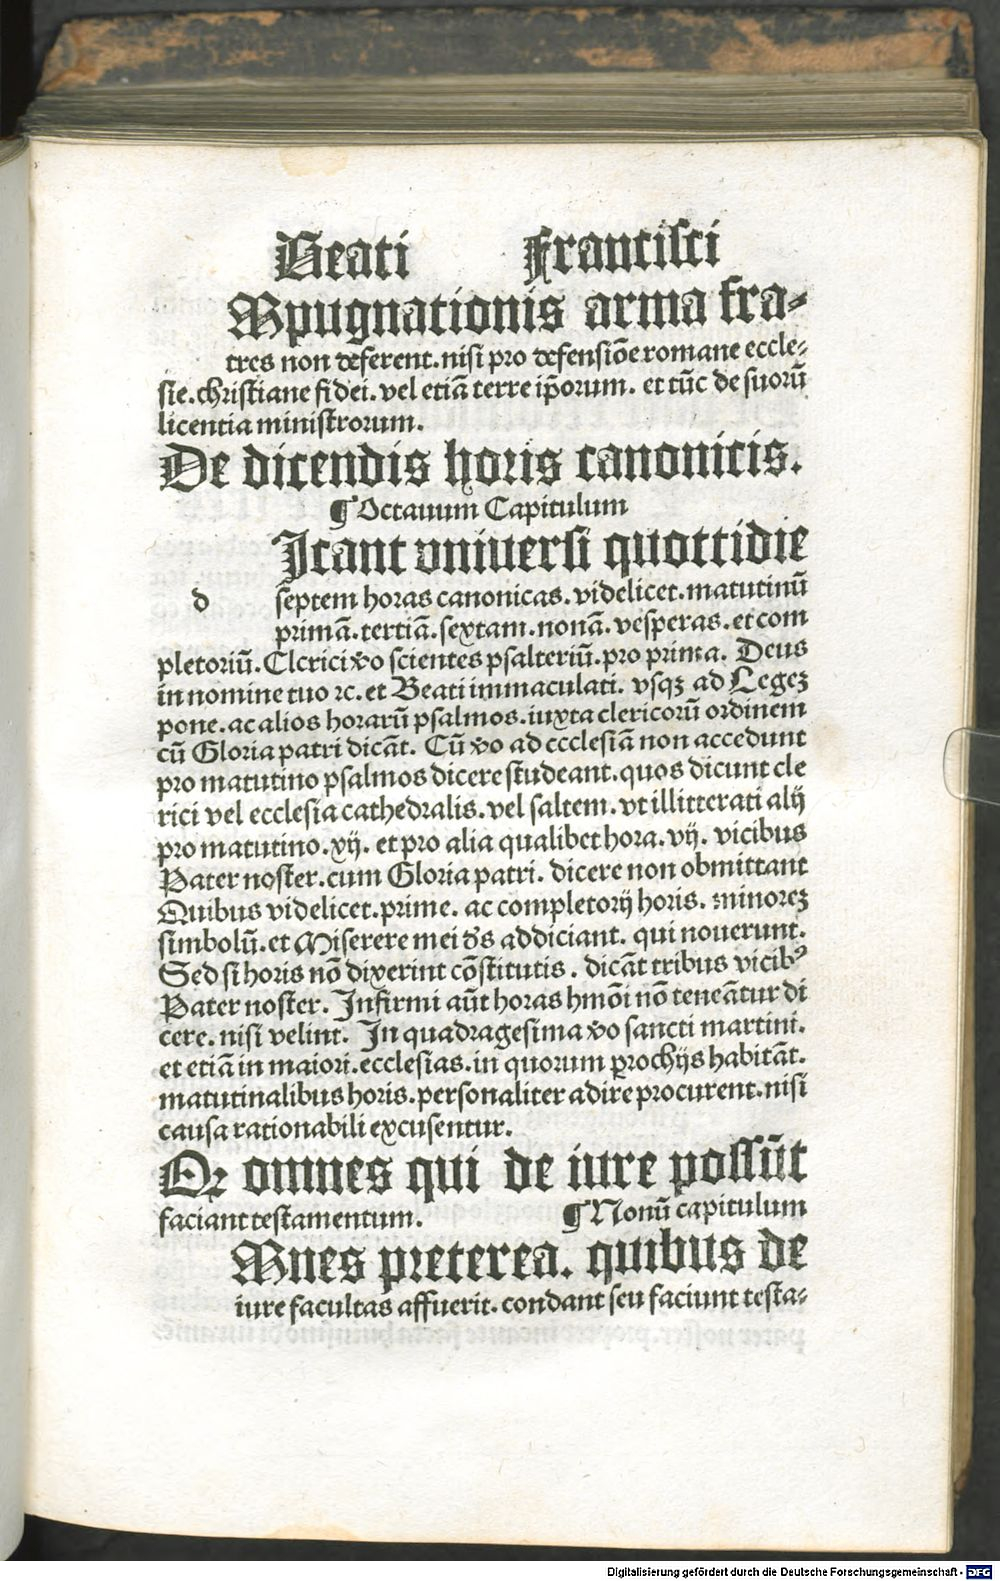 Beati Francisci
Mpugnationis arma fra-
tres non deferent. nisi pro defensiõe romane eccle-
sie. christiane fidei. vel etiã terre ip̃orum. et tũc de suorũ
licentia ministrorum.
De dicendis horis canonicis.
¶ Octauum Capitulum
Icant vniuersi quottidie
d septem horas canonicas. videlicet. matutinũ
primã. tertiã. sextam. nonã. vesperas. et com
pletoriũ. Clerici ṽo scientes psalteriũ. pro prima. Deus
in nomine tuo ⁊c. et Beati immaculati. vsqꝫ ad Legeꝫ
pone. ac alios horarũ psalmos. iuxta clericorũ ordinem
cũ Gloria patri dicãt. Cũ ṽo ad ecclesiã non accedunt
pro matutino psalmos dicere studeant. quos dicunt cle
rici vel ecclesia cathedralis. vel saltem. vt illitterati alij
pro matutino. xij. et pro alia qualibet hora. vij. vicibus
Pater noster. cum Gloria patri. dicere non obmittant
Quibus videlicet. prime. ac completorij horis. minoreꝫ
simbolũ. et Miserere mei d̃s addiciant. qui nouerunt.
Sed si horis nõ dixerint cõstitutis. dicãt tribus vicibꝰ
Pater noster. Infirmi aũt horas hmõi nõ teneãtur di
cere. nisi velint. In quadragesima ṽo sancti martini.
et etiã in maiori. ecclesias. in quorum ꝑrochijs habitãt.
matutinalibus horis. personaliter adire procurent. nisi
causa rationabili excusentur.
Qꝛ omnes qui de iure possũt
faciant testamentum. ¶ Nonũ capitulum
Mnes preterea. quibus de
iure facultas affuerit. condant seu faciunt testa-
Digitalisierung gefördert durch die Deutsche Forschungsgemeinschaft - DFG